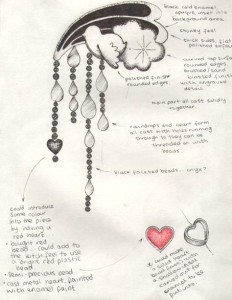 black cold enamel
opaque inlet into
background area
chunky feel
thick outer flat
polished surface
domed top surface
rounded edges
brushed / sand
blasted finish
with engraved
detail
polished finish
rounded edges
main part all cast solidly
together
raindrops and heart form
all cast with holes running
through so they can be
threaded on with
beads
black faceted beads - onyx?
could introduce
some colour
into the piece
by having a
red heart
- bought red
bead - could add to
the kitsch feel to use
a bright red plastic
bead
- semi-precious bead
- cast metal heart, painted
with enamel paint
if could make